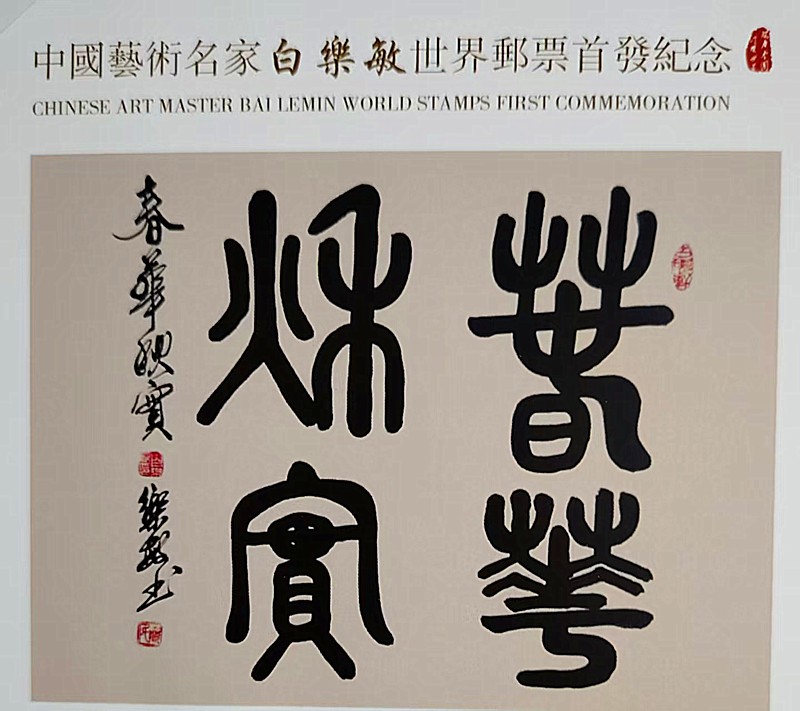 中國藝術名家白樂敏世界郵票首發紀念
CHINESE ART MASTER BAI LEMIN WORLD STAMPS FIRST COMMEMORATION
春華
秋實
春華秋實
樂敏书